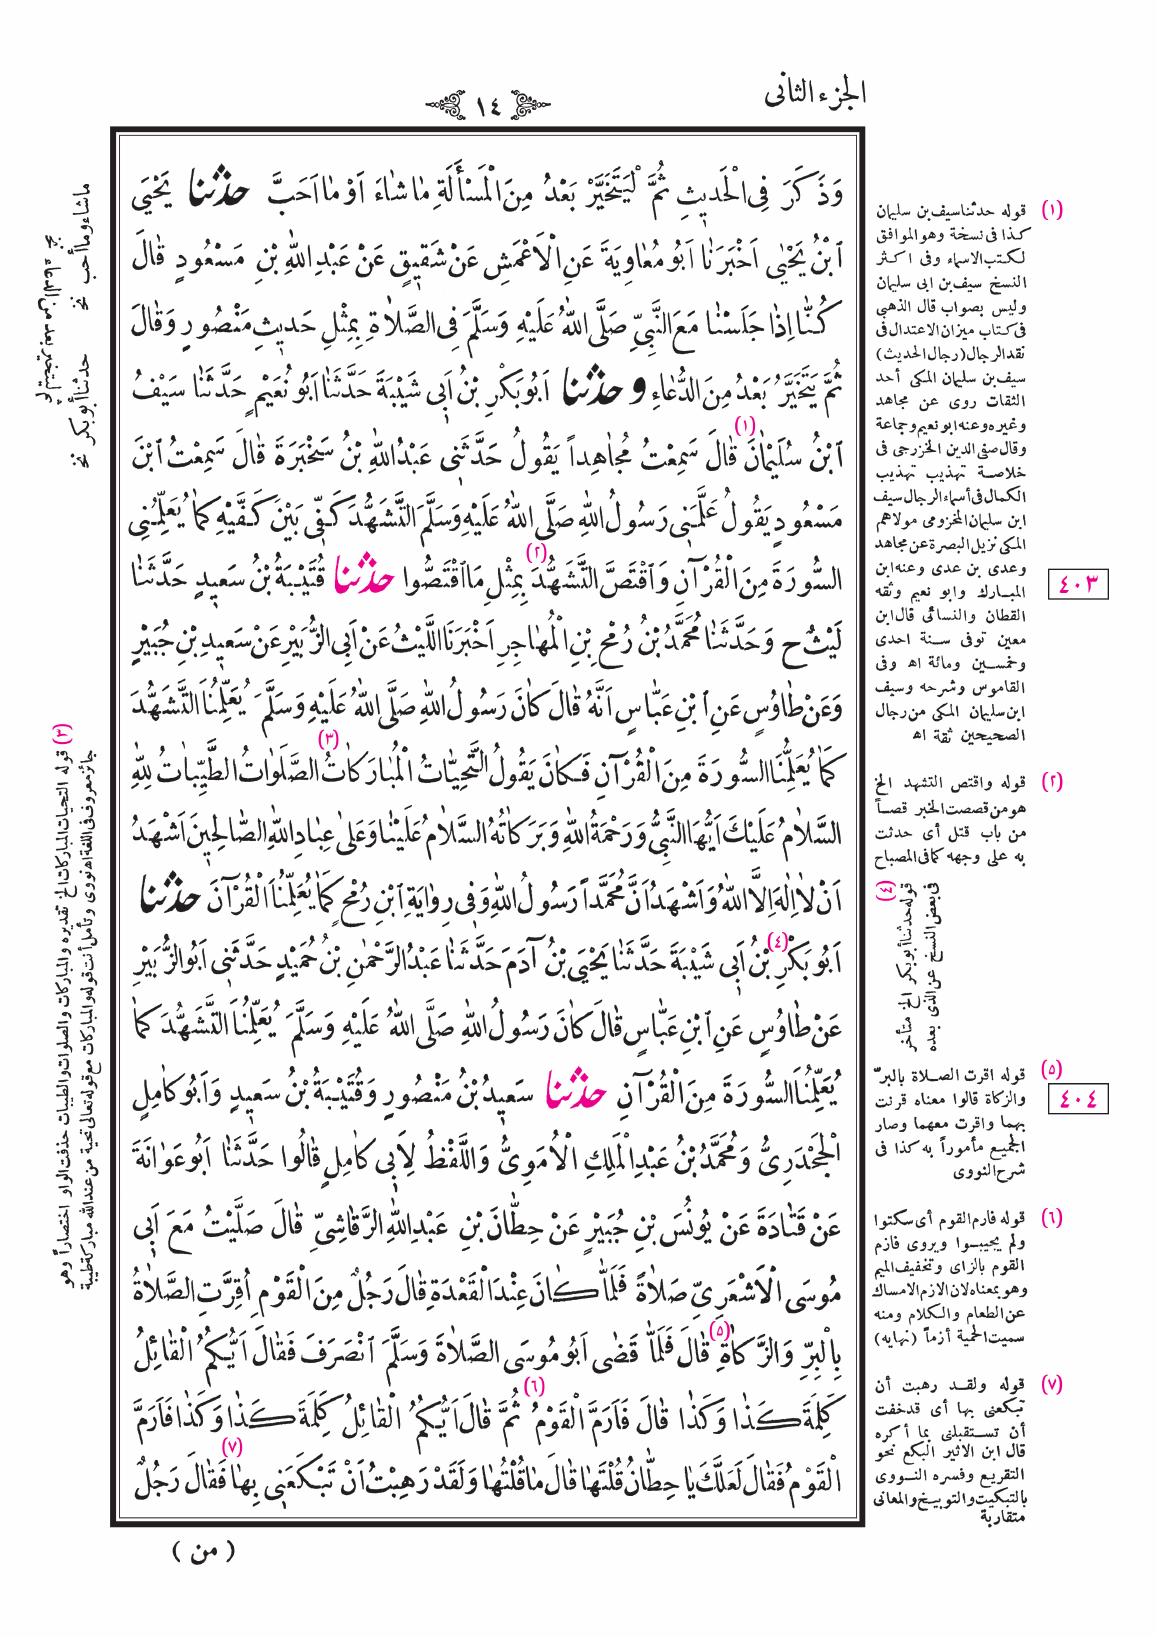 الجزء الثانى
١٤
وَذَكَرَ فِى الْحَدِيثِ ثُمَّ لْيَتَخَيَّرْ بَعْدُ مِنَ الْمَسْأَلَةِ مَا شَاءَ اَوْ مَا اَحَبَّ حدّثنا يَحْيَى
ابْنُ يَحْيٰى اَخْبَرَنَا اَبُو مُعَاوِيَةَ عَنِ الْاَعْمَشِ عَنْ شَقِيقٍ عَنْ عَبْدِ اللّٰهِ بْنِ مَسْعُودٍ قَالَ
كُنَّا اِذَا جَلَسْنَا مَعَ النَّبِىِّ صَلَّى اللّٰهُ عَلَيْهِ وَسَلَّمَ فِى الصَّلَاةِ بِمِثْلِ حَدِيثِ مَنْصُورٍ وَقَالَ
ثُمَّ يَتَخَيَّرُ بَعْدُ مِنَ الدُّعَاءِ و حدّثنا اَبُو بَكْرِ بْنُ اَبِى شَيْبَةَ حَدَّثَنَا اَبُو نُعَيْمٍ حَدَّثَنَا سَيْفُ
ابْنُ سُلَيْمَانَ (١) قَالَ سَمِعْتُ مُجَاهِداً يَقُولُ حَدَّثَنِى عَبْدُ اللّٰهِ بْنُ سَخْبَرَةَ قَالَ سَمِعْتُ ابْنَ
مَسْعُودٍ يَقُولُ عَلَّمَنِى رَسُولُ اللّٰهِ صَلَّى اللّٰهُ عَلَيْهِ وَسَلَّمَ التَّشَهُّدَ كَفِّى بَيْنَ كَفَّيْهِ كَمَا يُعَلِّمُنِى
السُّورَةَ مِنَ الْقُرْآنِ وَاقْتَصَّ التَّشَهُّدَ (٢) بِمِثْلِ مَا اقْتَصُّوا حدّثنا قُتَيْبَةُ بْنُ سَعِيدٍ حَدَّثَنَا
لَيْثٌ ح وَحَدَّثَنَا مُحَمَّدُ بْنُ رُمْحِ بْنِ الْمُهَاجِرِ اَخْبَرَنَا اللَّيْثُ عَنْ اَبِى الزُّبَيْرِ عَنْ سَعِيدِ بْنِ جُبَيْرٍ
وَعَنْ طَاوُسٍ عَنِ ابْنِ عَبَّاسٍ اَنَّهُ قَالَ كَانَ رَسُولُ اللّٰهِ صَلَّى اللّٰهُ عَلَيْهِ وَسَلَّمَ يُعَلِّمُنَا التَّشَهُّدَ
كَمَا يُعَلِّمُنَا السُّورَةَ مِنَ الْقُرْآنِ فَكَانَ يَقُولُ التَّحِيَّاتُ الْمُبَارَكَاتُ (٣) الصَّلَوَاتُ الطَّيِّبَاتُ لِلّٰهِ
السَّلَامُ عَلَيْكَ اَيُّهَا النَّبِىُّ وَرَحْمَةُ اللّٰهِ وَبَرَكَاتُهُ السَّلَامُ عَلَيْنَا وَعَلٰى عِبَادِ اللّٰهِ الصَّالِحِينَ اَشْهَدُ
اَنْ لَا اِلٰهَ اِلَّا اللّٰهُ وَاَشْهَدُ اَنَّ مُحَمَّداً رَسُولُ اللّٰهِ وَفِى رِوَايَةِ ابْنِ رُمْحٍ كَمَا يُعَلِّمُنَا الْقُرْآنَ حدّثنا
اَبُو بَكْرِ (٤) بْنُ اَبِى شَيْبَةَ حَدَّثَنَا يَحْيَى بْنُ آدَمَ حَدَّثَنَا عَبْدُ الرَّحْمٰنِ بْنُ حُمَيْدٍ حَدَّثَنِى اَبُو الزُّبَيْرِ
عَنْ طَاوُسٍ عَنِ ابْنِ عَبَّاسٍ قَالَ كَانَ رَسُولُ اللّٰهِ صَلَّى اللّٰهُ عَلَيْهِ وَسَلَّمَ يُعَلِّمُنَا التَّشَهُّدَ كَمَا
يُعَلِّمُنَا السُّورَةَ مِنَ الْقُرْآنِ حدّثنا سَعِيدُ بْنُ مَنْصُورٍ وَقُتَيْبَةُ بْنُ سَعِيدٍ وَاَبُو كَامِلٍ
الْجَحْدَرِىُّ وَمُحَمَّدُ بْنُ عَبْدِ الْمَلِكِ الْاُمَوِىُّ وَاللَّفْظُ لِاَبِى كَامِلٍ قَالُوا حَدَّثَنَا اَبُو عَوَانَةَ
عَنْ قَتَادَةَ عَنْ يُونُسَ بْنِ جُبَيْرٍ عَنْ حِطَّانَ بْنِ عَبْدِ اللّٰهِ الرَّقَاشِىِّ قَالَ صَلَّيْتُ مَعَ اَبِى
مُوسَى الْاَشْعَرِىِّ صَلَاةً فَلَمَّا كَانَ عِنْدَ الْقَعْدَةِ قَالَ رَجُلٌ مِنَ الْقَوْمِ اُقِرَّتِ الصَّلَاةُ
بِالْبِرِّ وَالزَّكَاةِ (٥) قَالَ فَلَمَّا قَضٰى اَبُو مُوسَى الصَّلَاةَ وَسَلَّمَ انْصَرَفَ فَقَالَ اَيُّكُمُ الْقَائِلُ
كَلِمَةَ كَذَا وَكَذَا قَالَ فَاَرَمَّ الْقَوْمُ (٦) ثُمَّ قَالَ اَيُّكُمُ الْقَائِلُ كَلِمَةَ كَذَا وَكَذَا فَاَرَمَّ
الْقَوْمُ فَقَالَ لَعَلَّكَ يَا حِطَّانُ قُلْتَهَا قَالَ مَا قُلْتُهَا وَلَقَدْ رَهِبْتُ اَنْ تَبْكَعَنِى بِهَا (٧) فَقَالَ رَجُلٌ
( من )
(١) قوله حدثنا سيف بن سليمان
كذا فى نسخة وهو الموافق
لكتب الاسماء وفى اكثر
النسخ سيف بن ابى سليمان
وليس بصواب قال الذهبى
فى كتاب ميزان الاعتدال فى
نقد الرجال (رجال الحديث)
سيف بن سليمان المكى أحد
الثقات روى عن مجاهد
وغيره وعنه ابو نعيم وجماعة
وقال صفى الدين الخزرجى فى
خلاصة تهذيب تهذيب
الكمال فى أسماء الرجال سيف
ابن سليمان المخزومى مولاهم
المكى نزيل البصرة عن مجاهد
وعدى بن عدى وعنه ابن
المبارك وابو نعيم وثقه
القطان والنسائى قال ابن
معين توفى سنة احدى
وخمسين ومائة اه وفى
القاموس وشرحه وسيف
ابن سليمان المكى من رجال
الصحيحين ثقة اه
٤٠٣
(٢) قوله واقتص التشهد الخ
هو من قصصت الخبر قصاً
من باب قتل أى حدثت
به على وجهه كما فى المصباح
(٤) قوله حدثنا أبو بكر الخ متأخر
فى بعض النسخ عن الذى بعده
(٥) قوله اقرت الصلاة بالبرّ
والزكاة قالوا معناه قرنت
بهما واقرت معهما وصار
الجميع مأموراً به كذا فى
شرح النووى
٤٠٤
(٦) قوله فارم القوم أى سكتوا
ولم يجيبوا ويروى فازم
القوم بالزاى وتخفيف الميم
وهو بمعناه لان الازم الامساك
عن الطعام والكلام ومنه
سميت الحمية أزماً (نهايه)
(٧) قوله ولقد رهبت أن
تبكعنى بها أى قد خفت
أن تستقبلنى بما أكره
قال ابن الاثير البكع نحو
التقريع وفسره النووى
بالتبكيت والتوبيخ والمعانى
متقاربة
ما شاء وما أحب نخ
ثم ليتخير بعد من الدعاء نخ
حدثنا أبو بكر نخ
(٣) قوله التحيات المباركات الخ تقديره والمباركات والصلوات والطيبات حذفت الواو اختصاراً وهو
جائز معروف فى اللغة اه نووى وتأمل أنت قوله والمباركات مع قوله تعالى تحية من عند الله مباركة طيبة